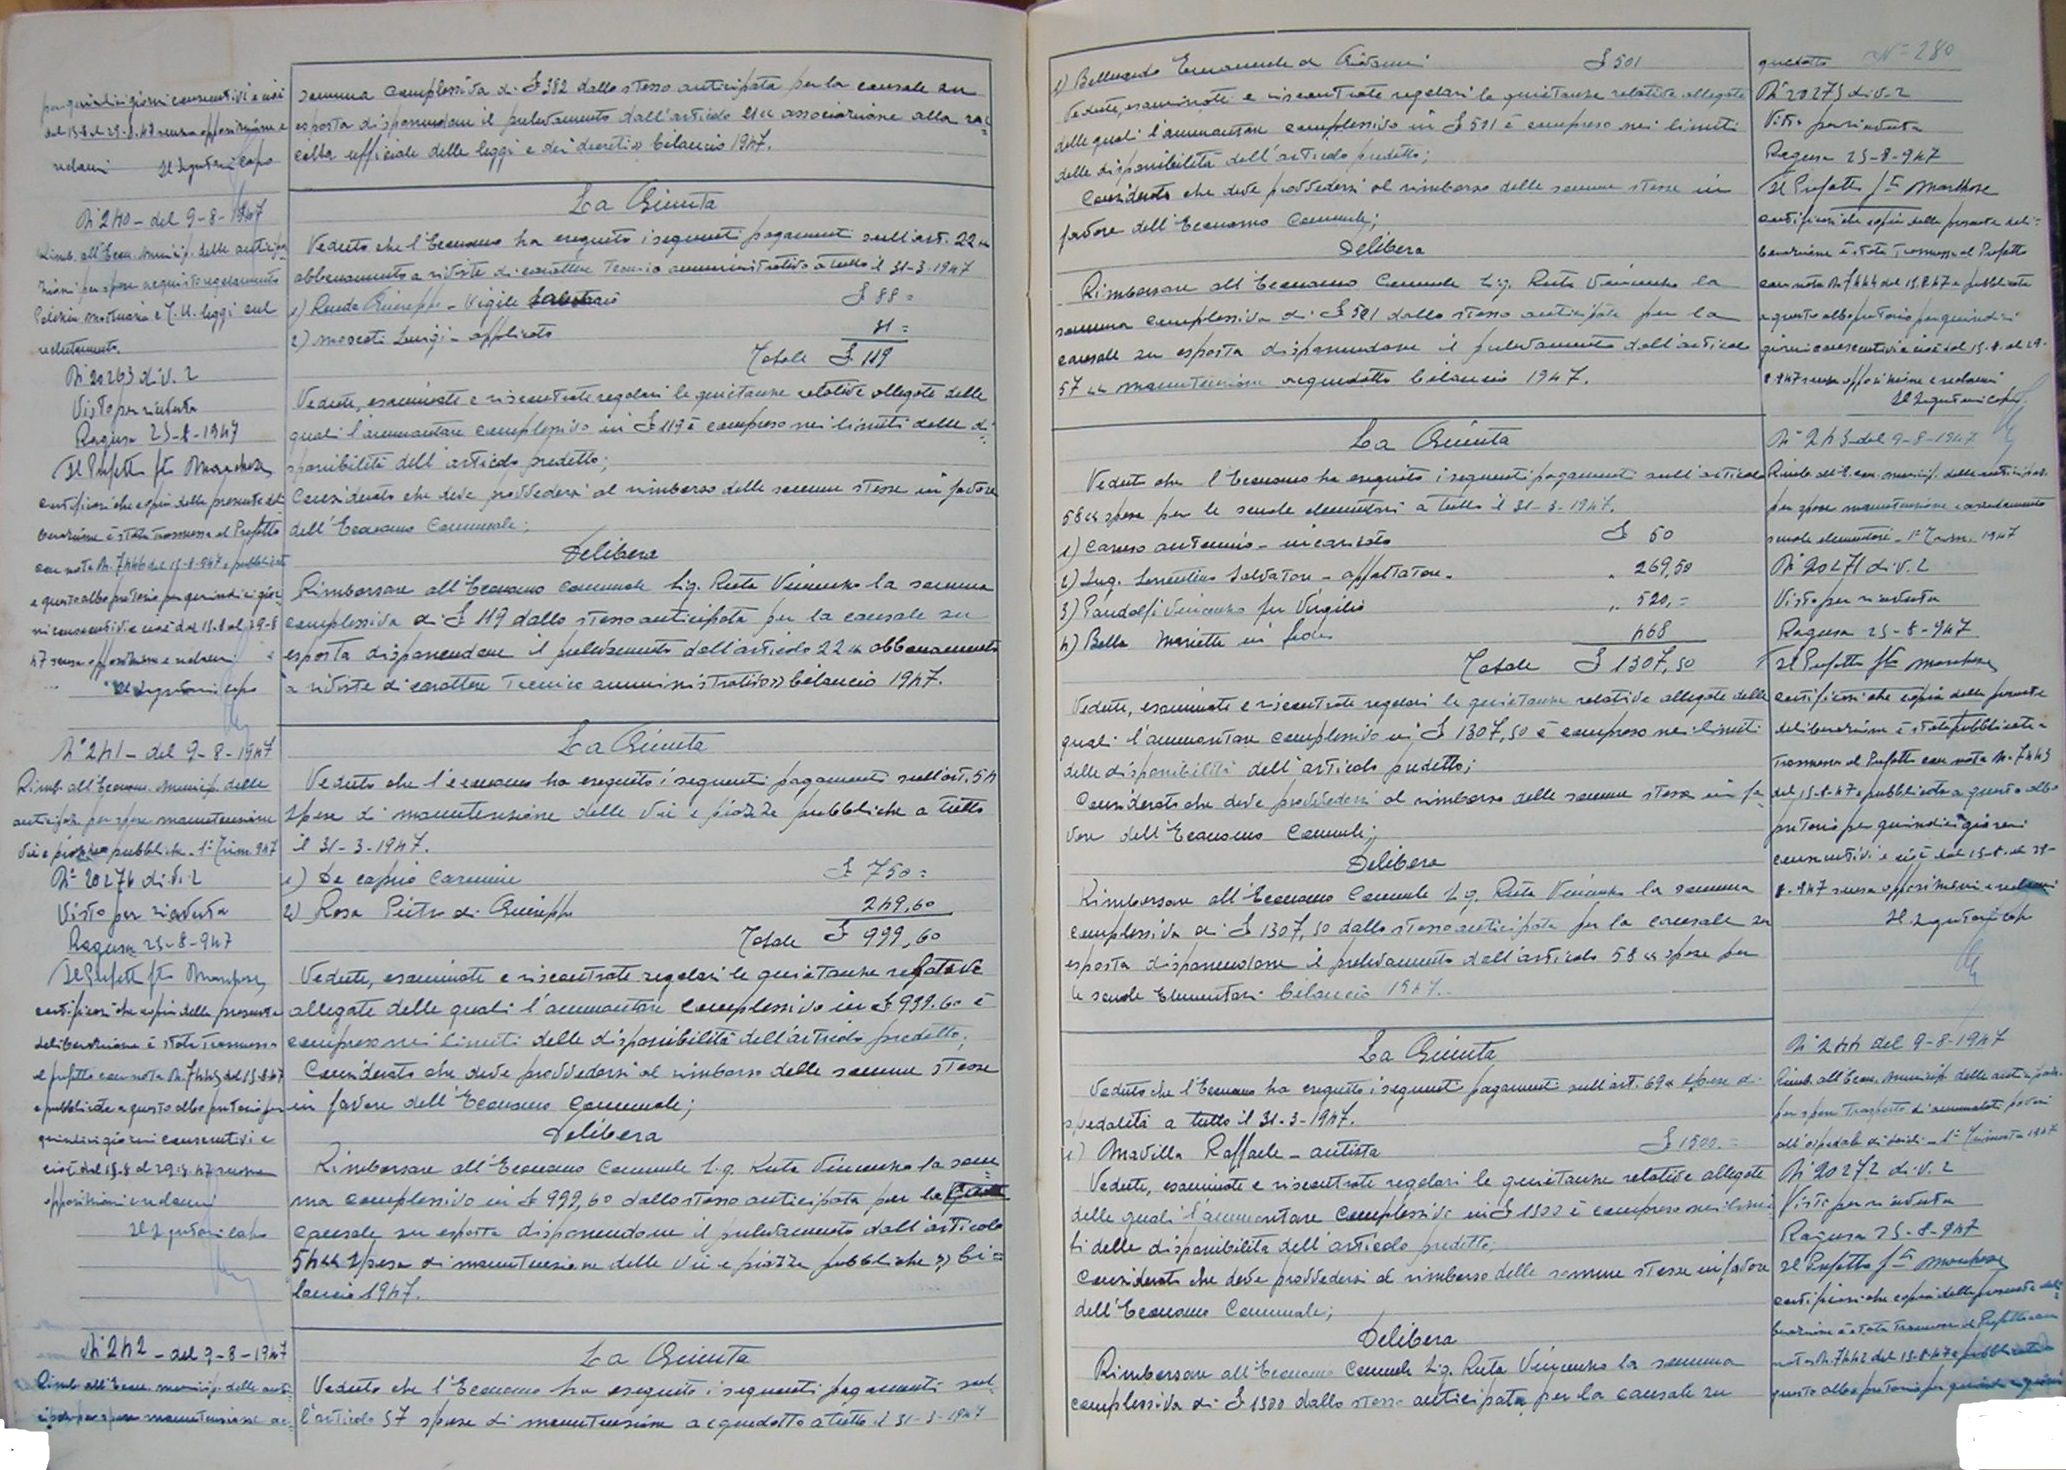 per quindici giorni consecutivi e cioè
dal 15-8 al 29-8-47 senza opposizioni e
reclami Il Segretario Capo
N° 240 - del 9-8-1947
Rimb. all'Econ. Municip. delle anticipa
zioni per spese acquisto regolamento
Polizia mortuaria e T. U. leggi sul
reclutamento.
N° 20263 div. 2
Visto per ricevuta
Ragusa 25-8-1947
Il Prefetto fto Marchese
certificasi che copia della presente deli
berazione è stata trasmessa al Prefetto
con nota N. 7446 del 15-8-947 e pubblicata
a questo albo pretorio per quindici gior
ni consecutivi e cioè dal 15-8 al 29-8
47 senza opposizioni e reclami
Il Segretario Capo
N° 241 - del 9-8-1947
Rimb. all'Econom. Municip. delle
anticipaz. per spese manutenzione
vie e piazze pubbliche - 1° Trim 947
N° 20276 div. 2
Visto per ricevuta
Ragusa 25-8-947
Il Prefetto fto Marchese
certificasi che copia della presente
deliberazione è stata trasmessa
al prefetto con nota N. 7445 del 15-8-47
e pubblicata a questo albo pretorio per
quindici giorni consecutivi e
cioè dal 15-8 al 29-8-47 senza
opposizioni e reclami
Il Segretario Capo
N° 242 - del 9-8-1947
Rimb. all'Econ. Municip. delle anti-
cipaz. per spese manutenzione ac-
somma complessiva di £ 382 dallo stesso anticipata per la causale su
esposta disponendone il prelevamento dall'articolo 21 « associazione alla rac=
colta ufficiale delle leggi e dei decreti » bilancio 1947.
La Giunta
Veduto che l'Economo ha eseguito i seguenti pagamenti sull'art. 22 «
abbonamento a riviste di carattere tecnico amministrativo a tutto il 31-3-1947
1) Renda Giuseppe - Vigile £ 88 =
2) Moscati Luigi - applicato 31 =
Totale £ 119
Vedute, esaminate e riscontrate regolari le quietanze relative allegate delle
quali l'ammontare complessivo in £ 119 è compreso nei limiti delle di
sponibilità dell'articolo predetto;
Considerato che deve provvedersi al rimborso delle somme stesse in favore
dell'Economo Comunale;
Delibera
Rimborsare all'Economo Comunale Sig. Ruta Vincenzo la somma
complessiva di £ 119 dallo stesso anticipata per la causale su
esposta disponendone il prelevamento dall'articolo 22 « abbonamento
a riviste di carattere tecnico amministrativo » bilancio 1947.
La Giunta
Veduto che l'economo ha eseguito i seguenti pagamenti sull'art. 54
spese di manutenzione delle vie e piazze pubbliche a tutto
il 31-3-1947.
1) De caprio Carmine £ 750 =
2) Rosa Pietro di Giuseppe 249,60
Totale £ 999,60
Vedute, esaminate e riscontrate regolari le quietanze relative
allegate delle quali l'ammontare complessivo in £ 999.60 è
compreso nei limiti delle disponibilità dell'articolo predetto;
Considerato che deve provvedersi al rimborso delle somme stesse
in favore dell'Economo Comunale;
Delibera
Rimborsare all'Economo Comunale Sig. Ruta Vincenzo la som=
ma complessiva in £ 999,60 dallo stesso anticipata per la
causale su esposta disponendone il prelevamento dall'articolo
54 « Spesa di manutenzione delle vie e piazze pubbliche » bi=
lancio 1947.
La Giunta
Veduto che l'Economo ha eseguito i seguenti pagamenti sul=
l'articolo 57 spese di manutenzione acquedotto a tutto il 31-3-1947
1) Belluardo Emanuele di Giovanni £ 501
Vedute, esaminate e riscontrate regolari le quietanze relative allegate
delle quali l'ammontare complessivo in £ 501 è compreso nei limiti
delle disponibilità dell'articolo predetto;
Considerato che deve provvedersi al rimborso delle somme stesse in
favore dell'Economo Comunale;
Delibera
Rimborsare all'Economo Comunale Sig. Ruta Vincenzo la
somma complessiva di £ 501 dallo stesso anticipata per la
causale su esposta disponendone il prelevamento dall'articolo
57 « manutenzione acquedotto bilancio 1947.
La Giunta
Veduto che l'Economo ha eseguito i seguenti pagamenti sull'articolo
58 « spese per le scuole elementari a tutto il 31-3-1947.
1) Caruso Antonio - incaricato £ 50
2) Ing. Sorrentino Salvatore - appaltatore. " 269,50
3) Pandolfi Vincenzo fu Virgilio " 520,=
4) Bella Marietta in 468
Totale £ 1307,50
Vedute, esaminate e riscontrate regolari le quietanze relative allegate delle
quali l'ammontare complessivo in £ 1307,50 è compreso nei limiti
delle disponibilità dell'articolo predetto;
Considerato che deve provvedersi al rimborso delle somme stesse in fa=
vore dell'Economo Comunale;
Delibera
Rimborsare all'Economo Comunale Sig. Ruta Vincenzo la somma
complessiva di £ 1307,50 dallo stesso anticipata per la causale su
esposta disponendone il prelevamento dall'articolo 58 « spese per
le scuole Elementari bilancio 1947.
La Giunta
Veduto che l'Economo ha eseguito i seguenti pagamenti sull'art. 69 « spese di
spedalità a tutto il 31-3-1947.
1) Mavilla Raffaele - autista £ 1500. =
Vedute, esaminate e riscontrate regolari le quietanze relative allegate
delle quali l'ammontare complessivo in £ 1500 è compreso nei limi
ti delle disponibilità dell'articolo predetto;
Considerato che deve provvedersi al rimborso delle somme stesse in favore
dell'Economo Comunale;
Delibera
Rimborsare all'Economo Comunale Sig. Ruta Vincenzo la somma
complessiva di £ 1500 dallo stesso anticipata per la causale su
quedotto N° 280
N° 20275 div. 2
Visto per ricevuta
Ragusa 25-8-947
Il Prefetto fto Marchese
certificasi che copia della presente deli=
berazione è stata trasmessa al Prefetto
con nota N. 7444 del 15.8.47 e pubblicata
a questo albo pretorio per quindici
giorni consecutivi e cioè dal 15.8. al 29-
8-947 senza opposizione e reclami
Il Segretario Capo
N° 243 del 9-8-1947
Rimb. all'Econ. Municip. delle anticipaz.
per spese manutenzione e arredamento
scuole elementari - 1° Trim. 1947
N° 20271 div. 2
Visto per ricevuta
Ragusa 25-8-947
Il Prefetto fto Marchese
certificasi che copia della presente
deliberazione è stata pubblicata e
trasmessa al Prefetto con nota N. 7443
del 15-8-47 e pubblicata a questo albo
pretorio per quindici giorni
consecutivi e cioè dal 15-8- al 29-
8-947 senza opposizioni e reclami
Il Segretario Capo
N° 244 del 9-8-1947
Rimb. all'Econ. Municip. delle anticipaz.
per spese trasporto di ammalati poveri
all'ospedale di - 1° Trimestre 1947
N° 20272 div. 2
Visto per ricevuta
Ragusa 25-8-947
Il Prefetto fto Marchese
certificasi che copia della presente deli=
berazione è stata trasmessa al Prefetto con
nota N. 7442 del 15.8.47 e pubblicata a
questo albo pretorio per quindici giorni